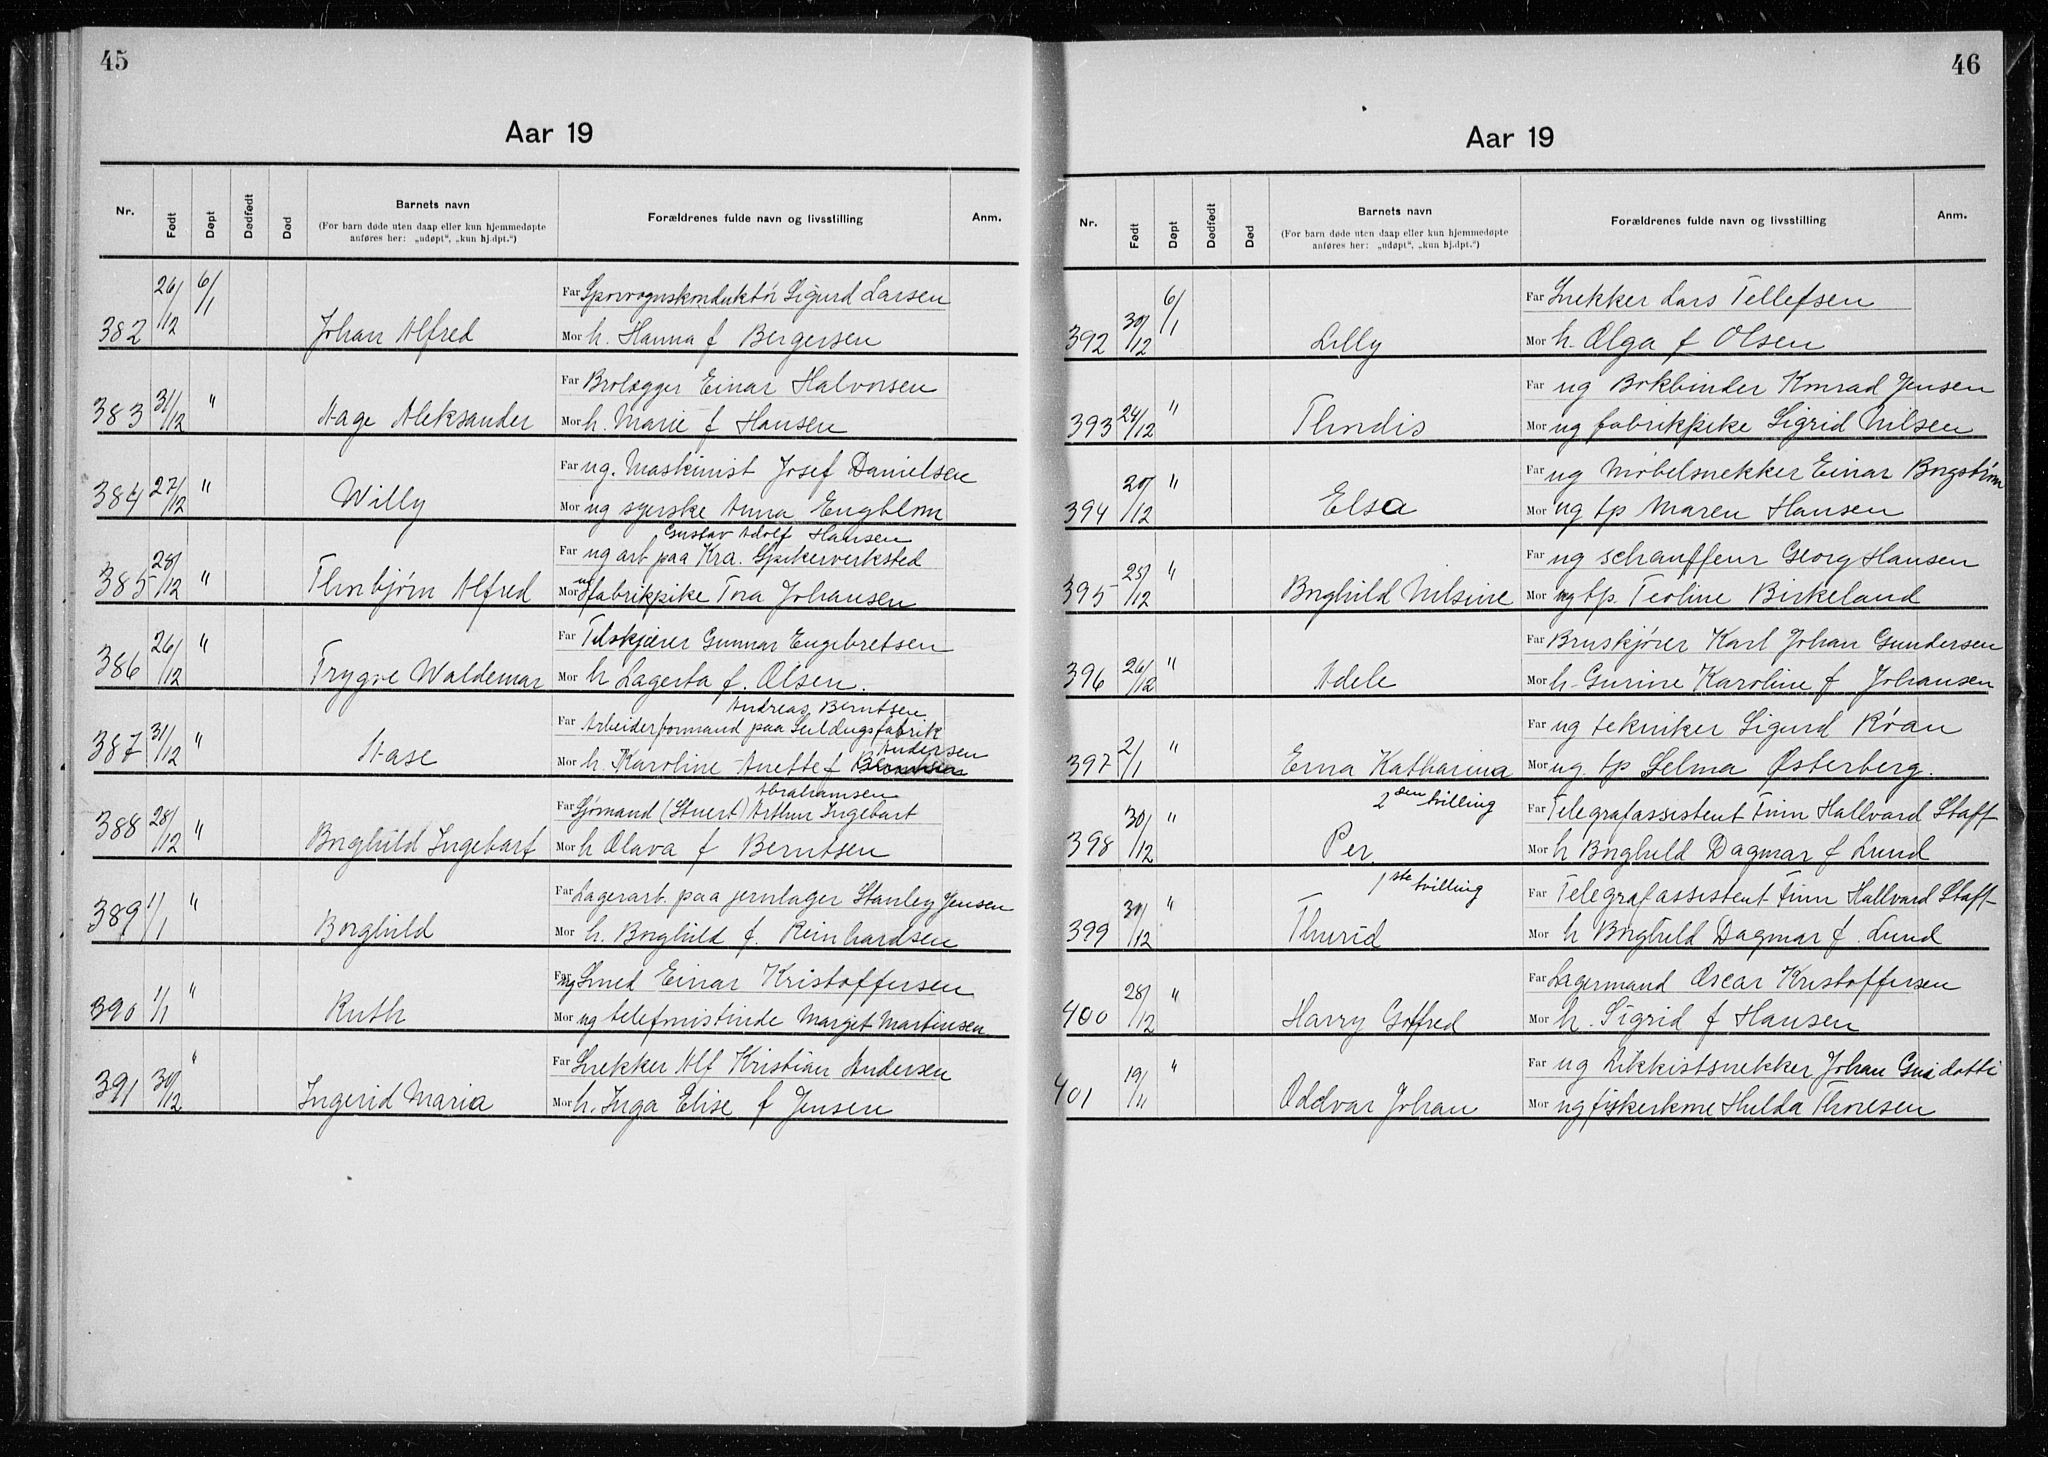 45
Aar 19
Nr.
Født
Døpt
Dødfødt
Død
Barnets navn
(For barn døde uten daap eller kun hjemmedøpte
anføres her: „udøpt", „kun hj.dpt.")
Forældrenes fulde navn og livsstilling
Anm.
382 26/12 6/1 Johan Alfred
Far Sporvognskonduktør Sigurd Larsen
Mor h. Hanna f Bergersen
383 31/12 " Aage Aleksander
Far Brolægger Einar Halvorsen
Mor h. Marie f Hansen
384 27/12 " Willy
Far ug. Maskinist Josef Danielsen
Mor ug syerske Anna Engblom
385 28/12 " Thorbjørn Alfred
Gustav Adolf Hansen
Far ug arb paa Kra. Spikerverksted
Mor ug fabrikpike Tora Johansen
386 26/12 " Trygve Waldemar
Far Tilskjærer Gunnar Engebretsen
Mor h Lagerta f. Olsen.
387 31/12 " Aase
Andreas Berntsen
Far Arbeiderformand paa Seildugsfabrik
Andersen
Mor h. Karoline Anette f
388 28/12 " Borghild Ingebart
Abrahamsen
Far Sjømand (Stuert) Arthur Ingebart
Mor h Olava f Berntsen
389 1/1 " Borghild
Far Lagerarb. paa jernlager Stanley Jensen
Mor h. Borghild f. Reinhardsen
390 1/1 " Ruth
Far ug Smed Einar Kristoffersen
Mor ug telefonistinde Margit Martinsen
391 30/12 " Ingerid Maria
Far Snekker Alf Kristian Andersen
Mor h. Inga Elise f Jensen
46
Aar 19
Nr.
Født
Døpt
Dødfødt
Død
Barnets navn
(For barn døde uten daap eller kun hjemmedøpte
anføres her: „udøpt", „kun hj.dpt.")
Forældrenes fulde navn og livsstilling
Anm.
392 30/12 6/1 Lilly
Far Snekker Lars Tellefsen
Mor h. Olga f Olsen
393 24/12 " Thordis
Far ug Bokbinder Konrad Jensen
Mor ug fabrikpike Sigrid Nilsen
394 20/12 " Elsa
Far ug Møbelsnekker Einar Borgstrøm
Mor ug tp Maren Hansen
395 25/12 " Borghild Nilsine
Far ug schauffeur Georg Hansen
Mor ug tp. Teoline Birkeland
396 26/12 " Adele
Far Bruskjører Karl Johan Gundersen
Mor h. Gurine Karoline f Johansen
397 2/1 " Erna Katharina
Far ug tekniker Sigurd Røan
Mor ug. tp Selma Østerberg.
2den tvilling
398 30/12 " Per.
Far Telegrafassistent Finn Hallvard Staff
Mor h Borghild Dagmar f Lund
1ste tvilling
399 30/12 " Thurid
Far Telegrafassistent Finn Hallvard Staff
Mor h Borghild Dagmar f. Lund
400 28/12 " Harry Gotfred
Far Lagermand Oscar Kristoffersen
Mor h. Sigrid f Hansen
401 19/11 " Oddvar Johan
Far ug Likkistsnekker Johan Guidotti
Mor ug fiskerkone Hulda Thoresen